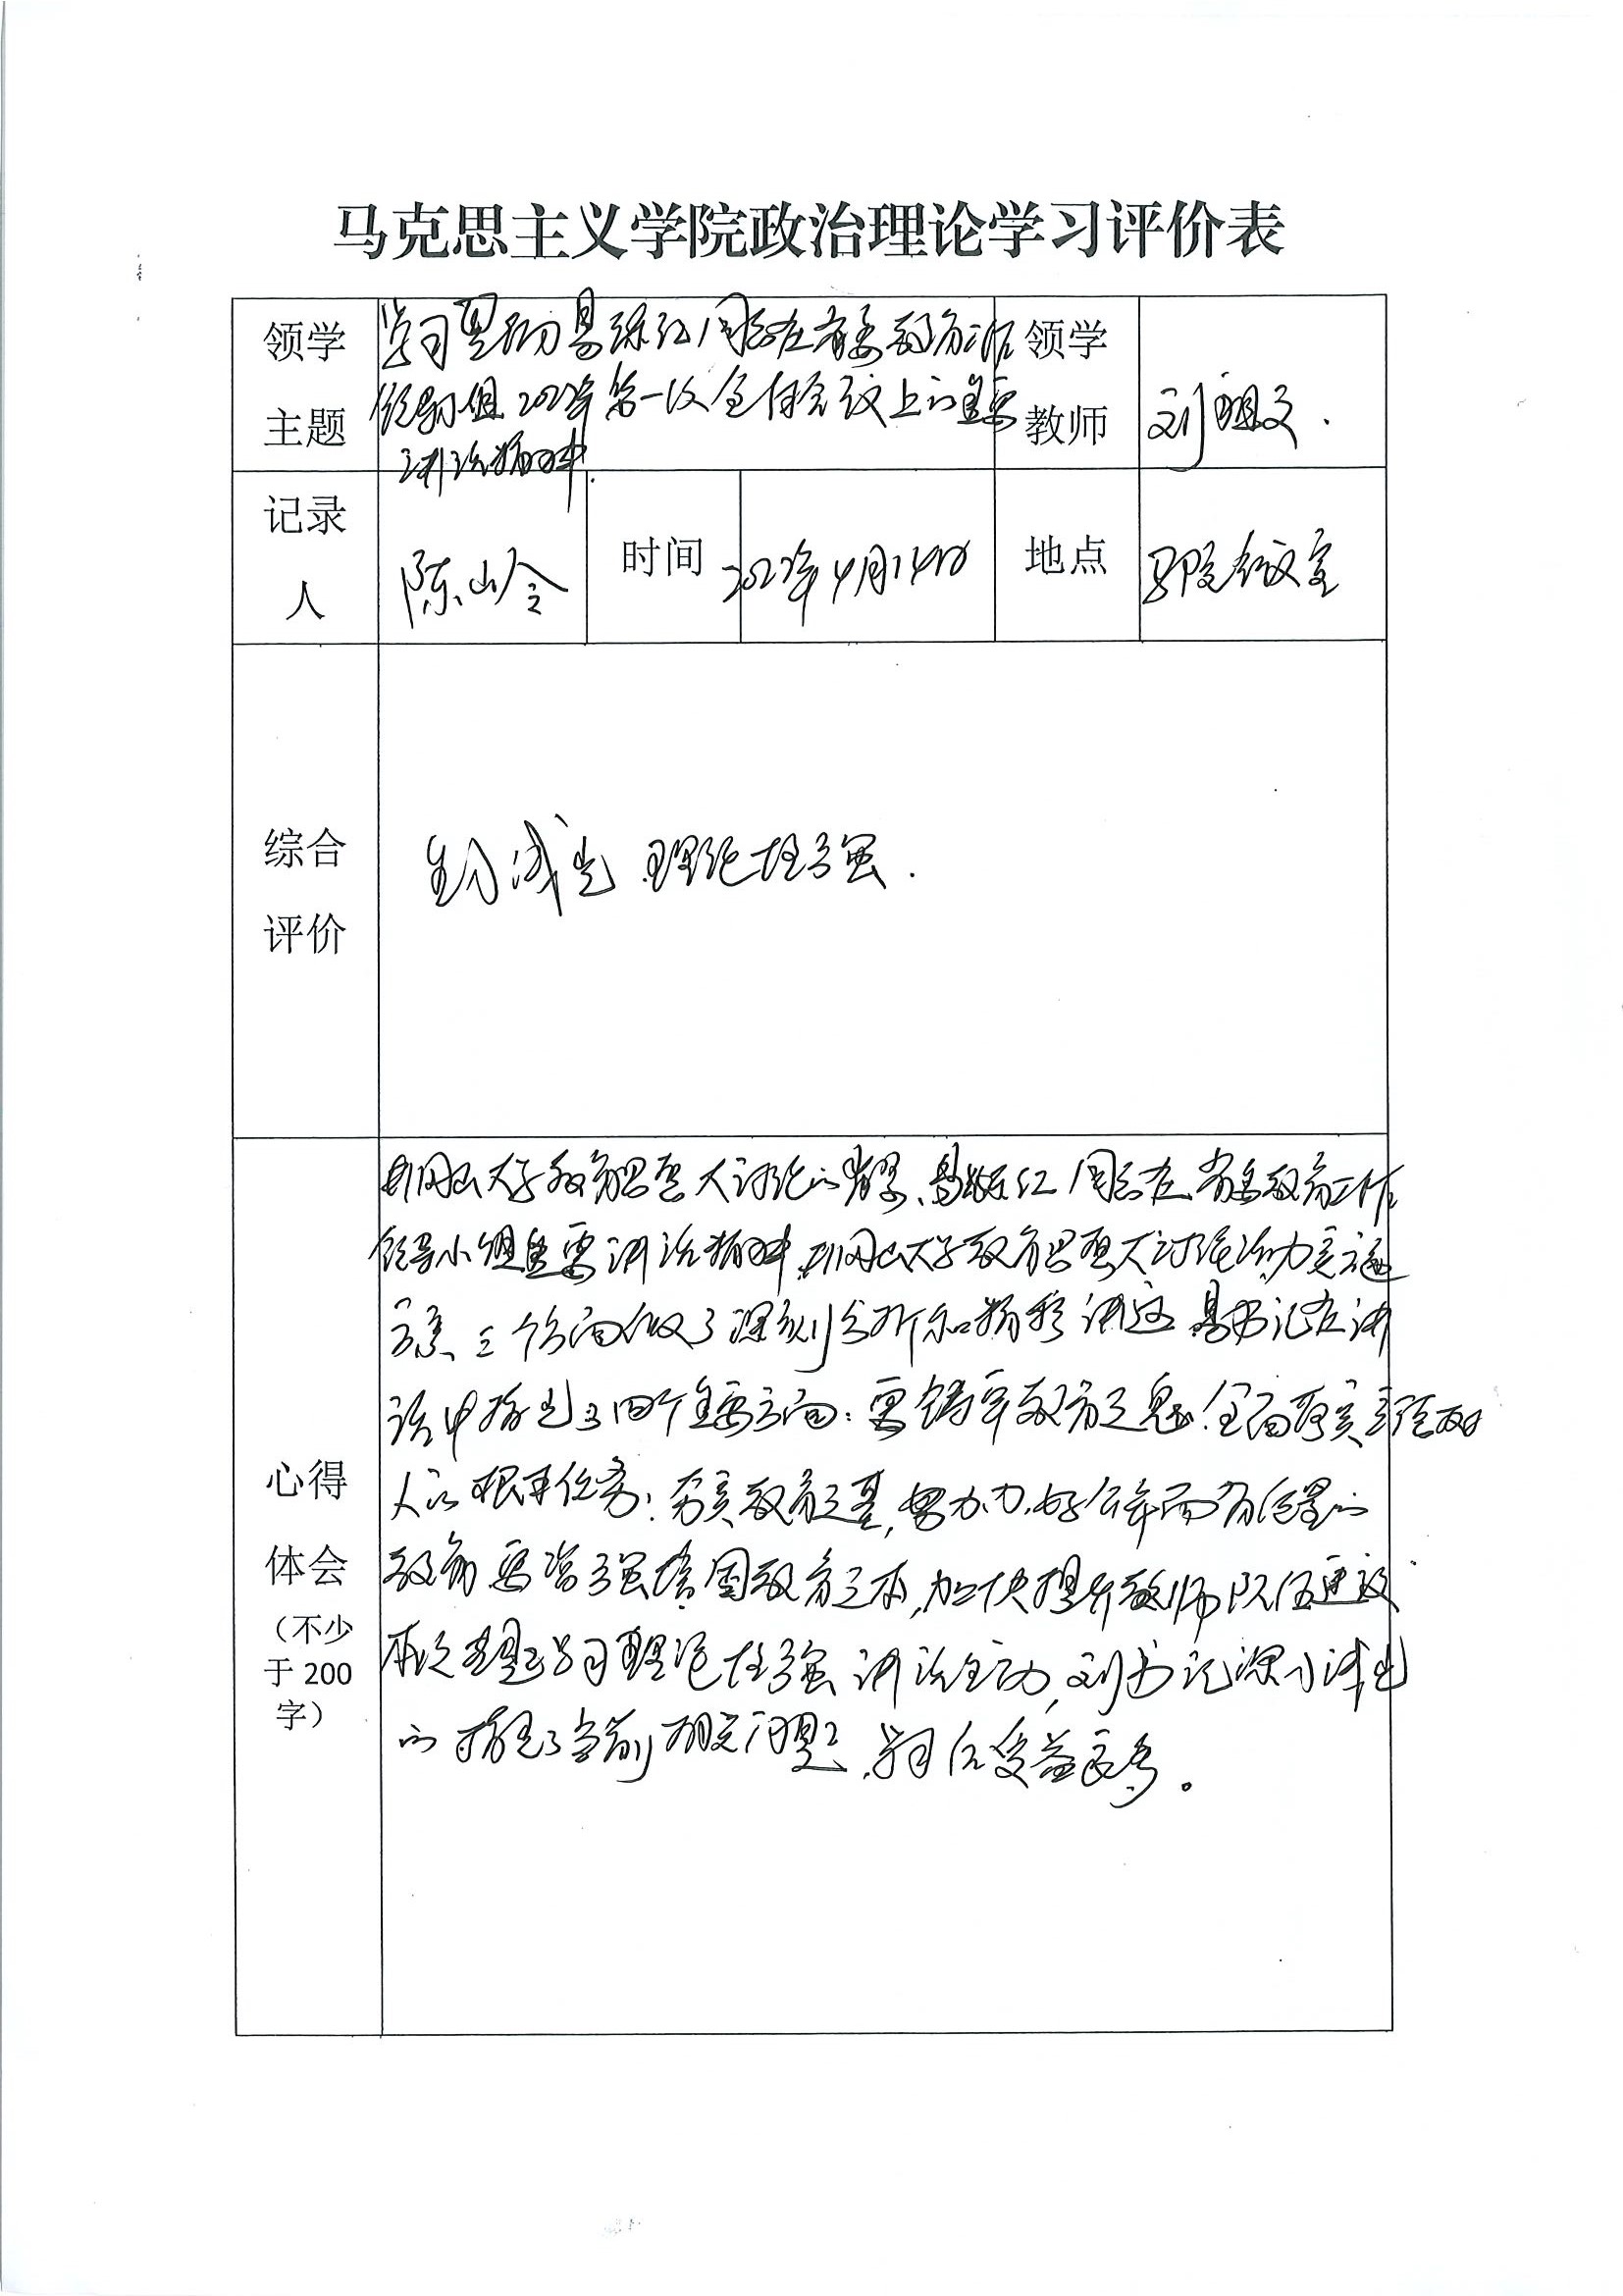 马克思主义学院政治理论学习评价表
领学主题
学习贯彻易炼红同志在省委教育工作
领导小组2022年第一次全体会议上的重要
讲话精神
领学教师
刘明文.
记录人
陈岭
时间
2022年4月14日
地点
马院会议室
综合评价
学习深刻 理论性强.
心得体会(不少于200字)
大学教育思想大讨论的背景、易炼红同志在省委教育工作
领导小组重要讲话精神、大学教育思想大讨论活动实施
方案三个方面做了深刻分析和精彩讲述 易书记在讲
话中指出了四个重要方面:要铸牢教育之魂,全面落实立德树
人的根本任务;夯实教育之基,要办好公平而有质量的
教育 要增强培固教育之本,加快提升教师队伍建设
本次主题学习理论性强 讲话生动,刘书记深入浅出
的指出了当前相关问题,学习后受益良多。